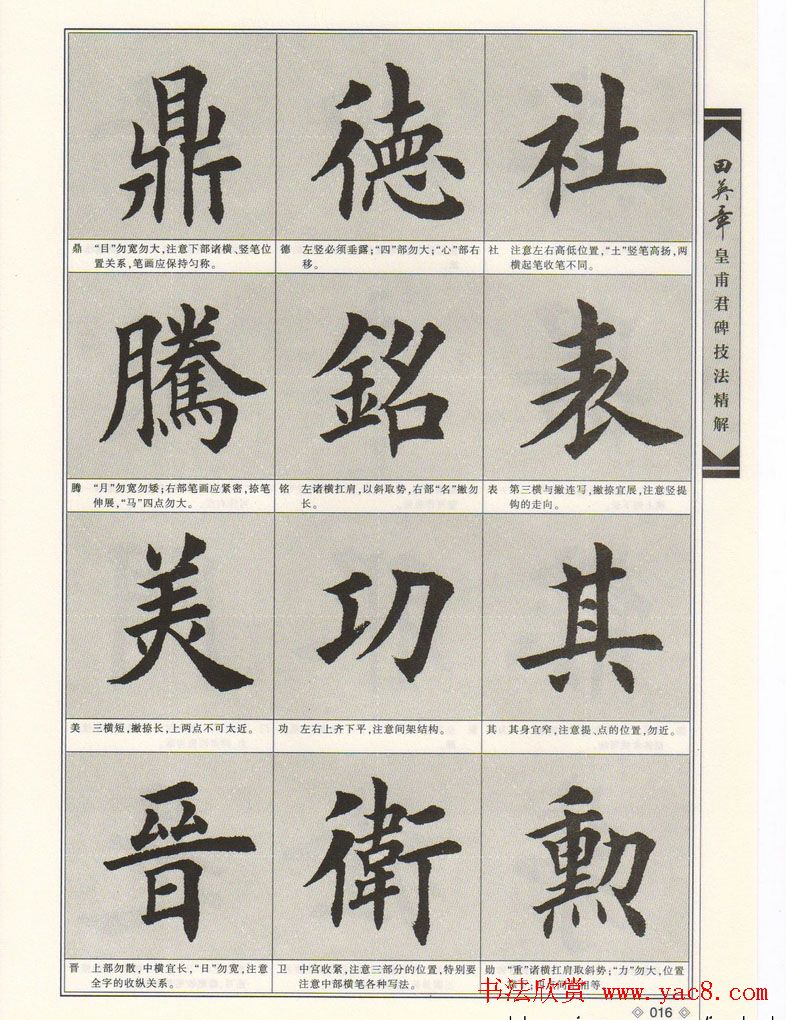 鼎 德 社
鼎 “目”勿宽勿大,注意下部诸横、竖笔位
置关系,笔画应保持匀称。
德 左竖必须垂露;“四”部勿大;“心”部右
移。
社 注意左右高低位置,“土”竖笔高扬,两
横起笔收笔不同。
騰 銘 表
腾 “月”勿宽勿矮;右部笔画应紧密,捺笔
伸展,“马”四点勿大。
铭 左诸横扛肩,以斜取势,右部“名”撇勿
长。
表 第三横与撇连写,撇捺宜展,注意竖提
钩的走向。
美 功 其
美 三横短,撇捺长,上两点不可太近。
功 左右上齐下平,注意间架结构。
其 其身宜窄,注意提、点的位置,勿近。
晉 衛 勳
晋 上部勿散,中横宜长,“日”勿宽,注意
全字的收纵关系。
卫 中宫收紧,注意三部分的位置,特别要
注意中部横笔各种写法。
勋 “重”诸横扛肩取斜势;“力”勿大,位置
相等
田英章 皇甫君碑技法精解
书法欣赏 www.yac8.com
016